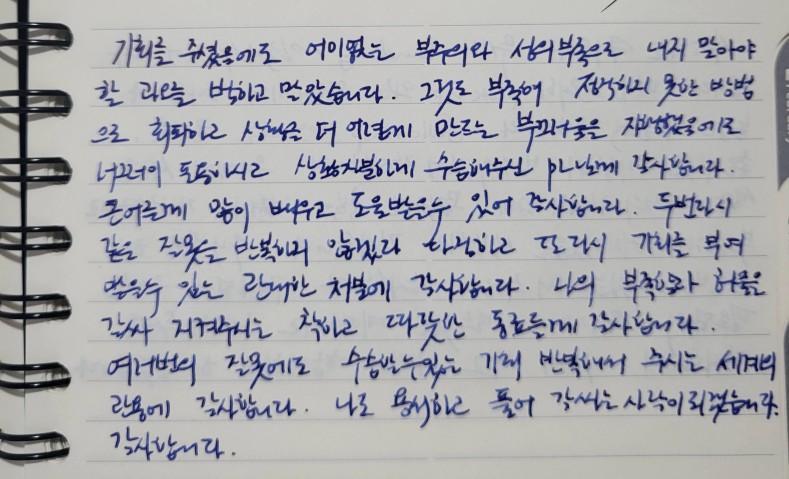 기회를 주셨음에도 어이없는 부주의와 성의부족으로 내지 말아야
할 과오를 범하고 말았습니다. 그것도 부족해 정직하지 못한 방법
으로 회피하고 상황을 더 어렵게 만드는 부끄러움을 자행했음에도
너그러이 포용하시고 상황처분하게 수습해주신 PL님께 감사합니다.
많이 배우고 도움받을수 있어 감사합니다. 두번다시
같은 잘못을 반복하지 않겠다 다짐하고 또다시 기회를 부여
받을수 있는 관대한 처분에 감사합니다. 나의 부족함과 허물을
감싸 지켜주시는 착하고 따뜻한 동료들께 감사합니다.
여러번의 잘못에도 수습할수있는 기회 반복해서 주시는 세계의
관용에 감사합니다. 나도 용서하고 품어 감싸는 사람이 되겠습니다.
감사합니다.